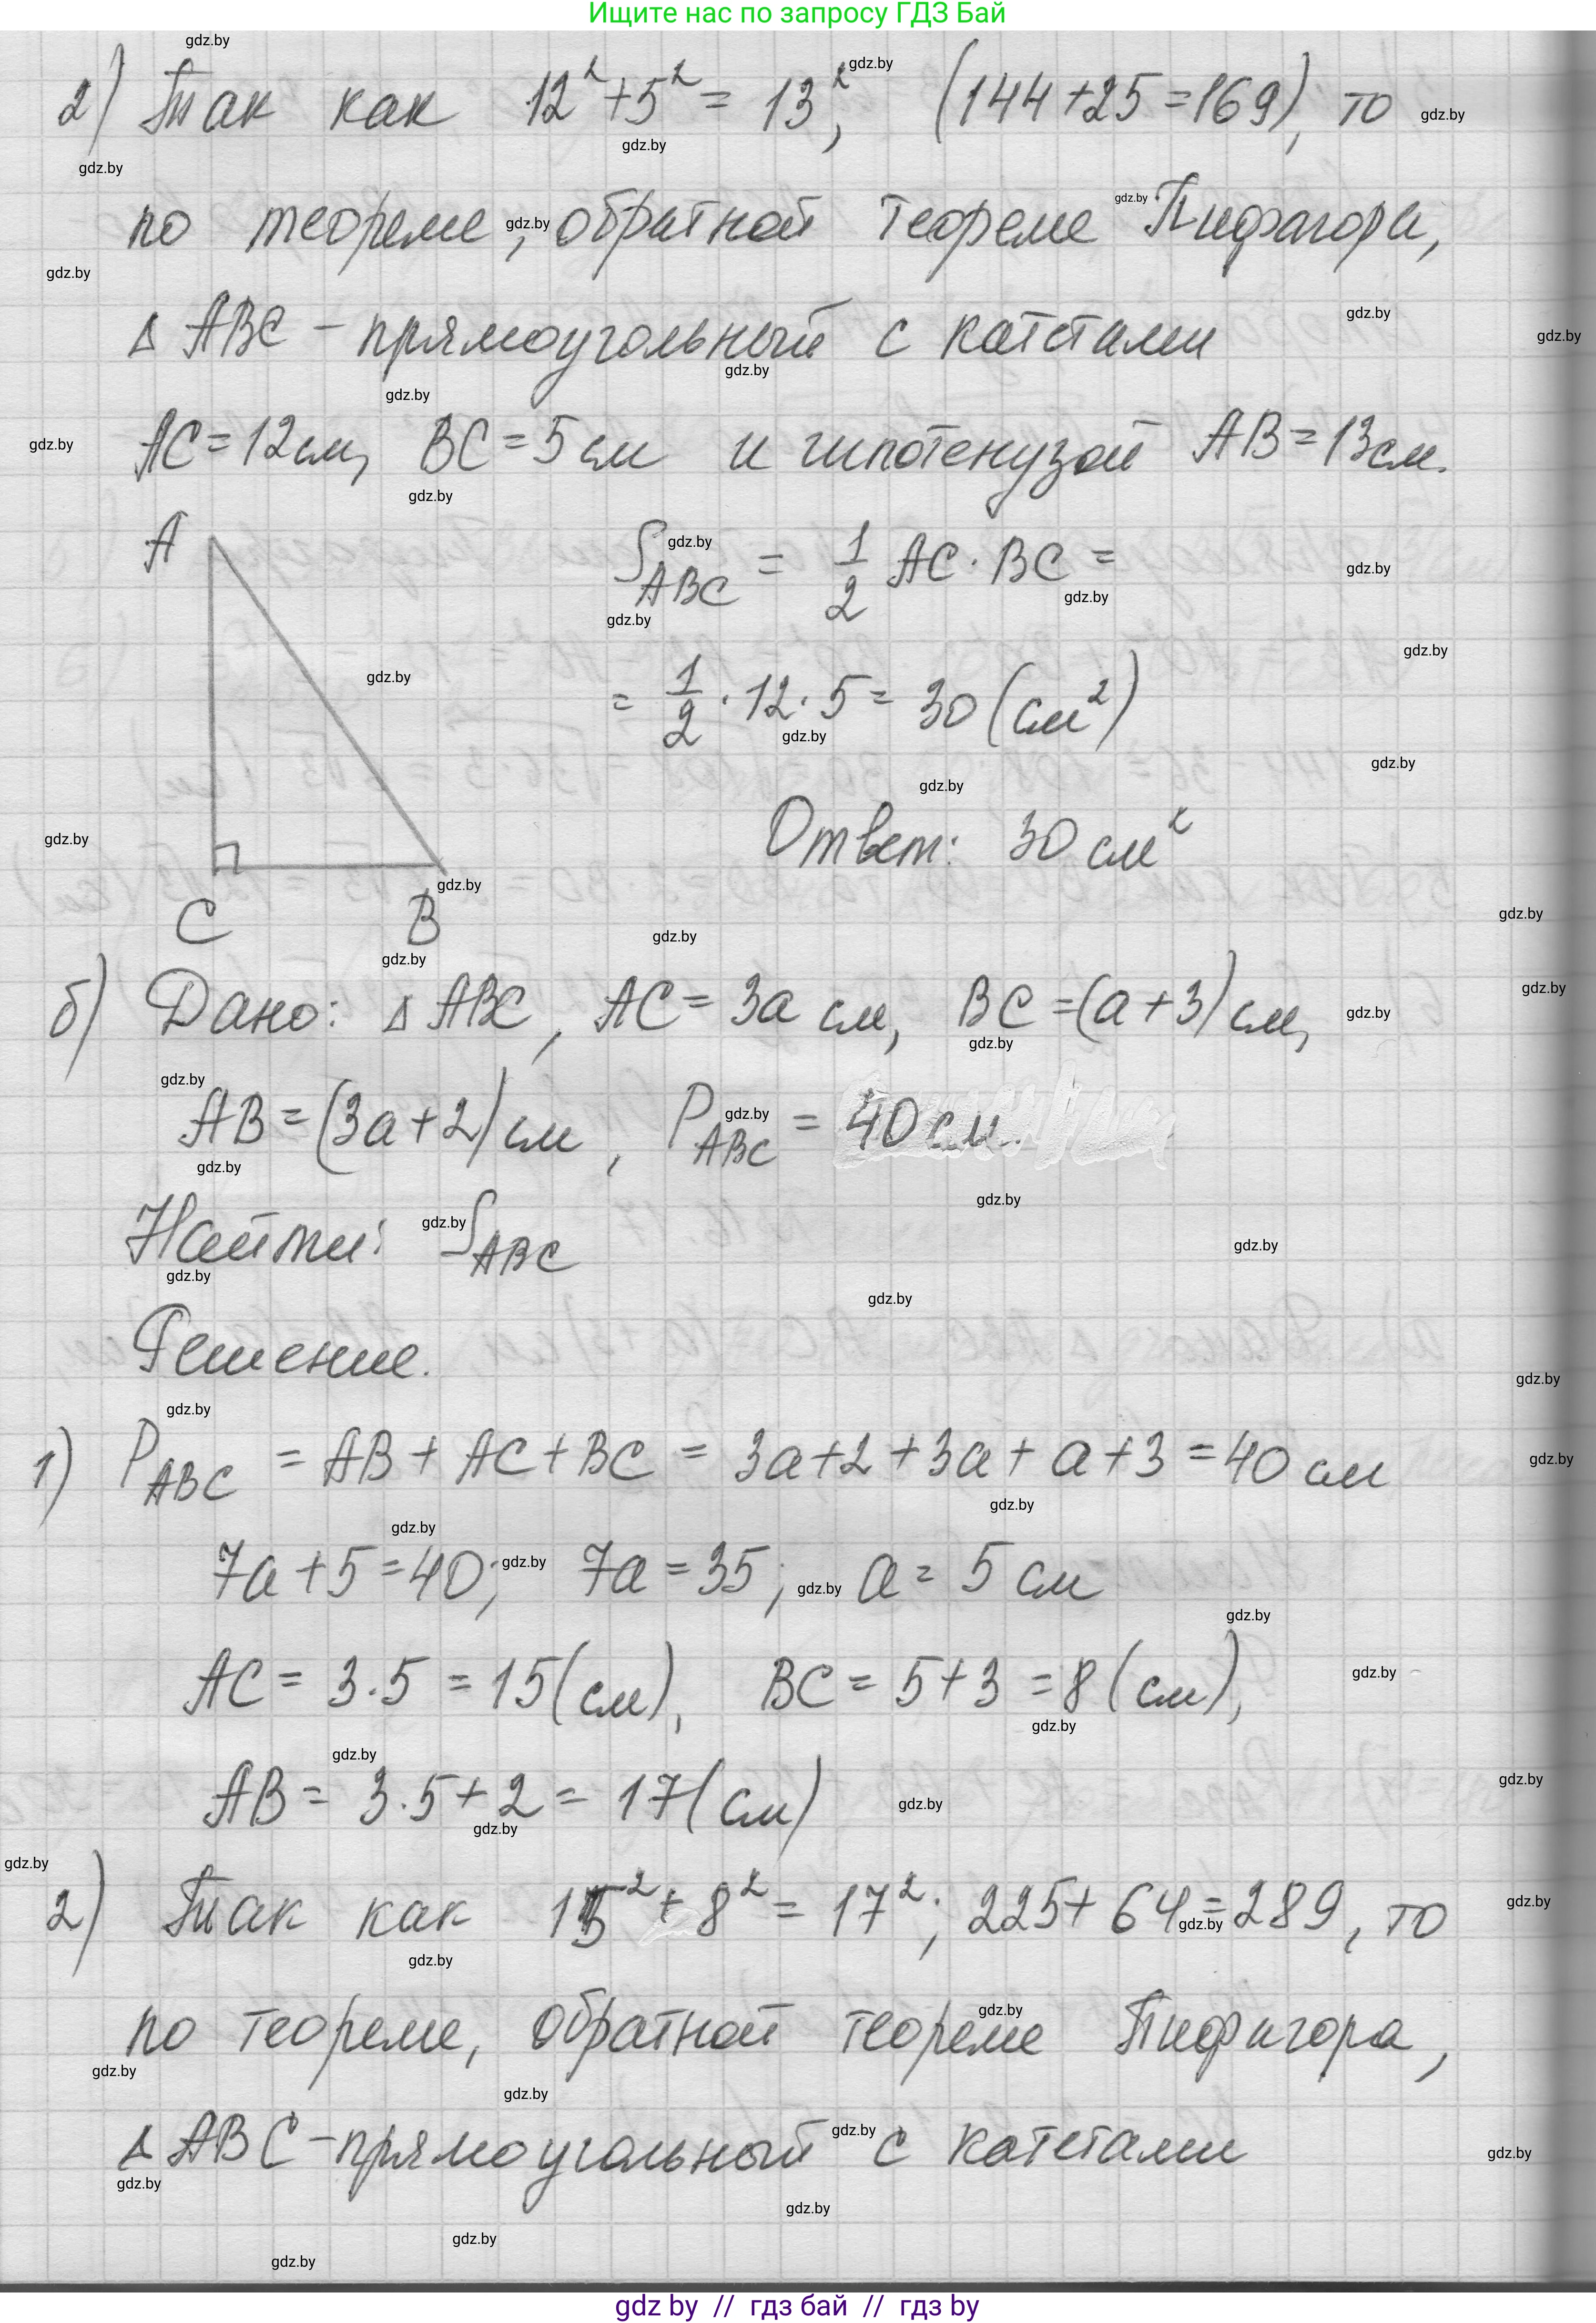 Ищите нас по запросу ГДЗ Бай
2) Так как 12² + 5² = 13², (144 + 25 = 169), то
по теореме, обратной теореме Пифагора,
Δ ABC - прямоугольный с катетами
AC = 12 см, BC = 5 см и гипотенузой AB = 13 см.
A
S_ABC = 1/2 AC · BC =
= 1/2 · 12 · 5 = 30 (см²)
Ответ: 30 см²
C B
б) Дано: Δ ABC, AC = 3a см, BC = (a + 3) см,
AB = (3a + 2) см, P_ABC = 40 см.
Найти: S_ABC
Решение.
1) P_ABC = AB + AC + BC = 3a + 2 + 3a + a + 3 = 40 см
7a + 5 = 40; 7a = 35; a = 5 см
AC = 3 · 5 = 15 (см), BC = 5 + 3 = 8 (см),
AB = 3 · 5 + 2 = 17 (см)
2) Так как 15² + 8² = 17²; 225 + 64 = 289, то
по теореме, обратной теореме Пифагора,
Δ ABC - прямоугольный с катетами
gdz by // гдз бай // гдз by